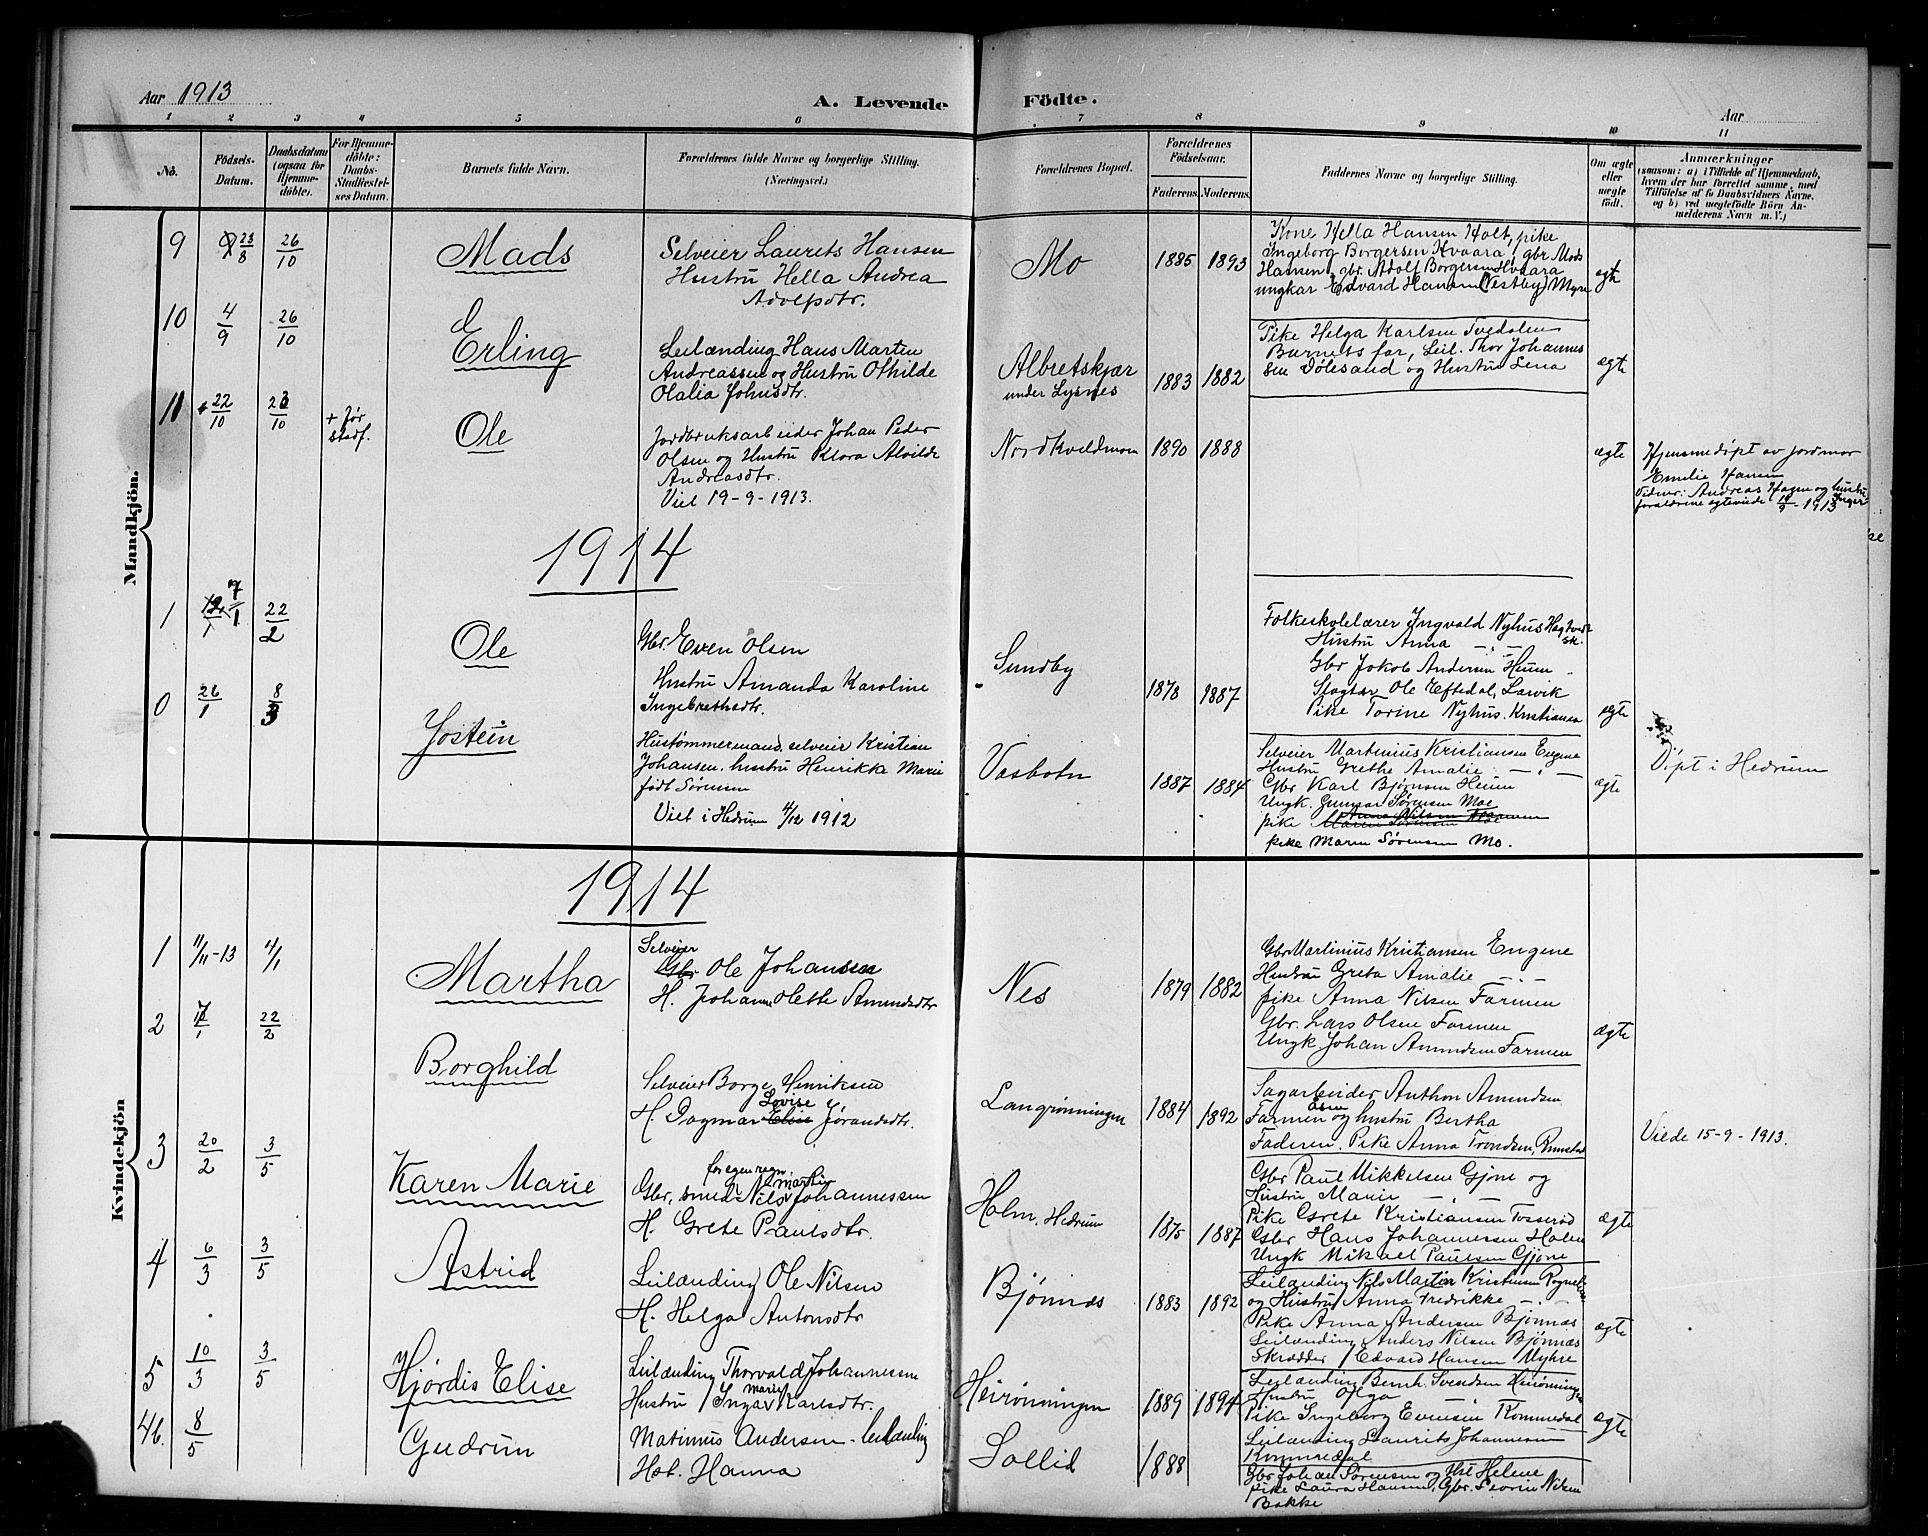 Aar 1913
A. Levende Födte.
Aar
1 2 3 4 5 6 7 8 9 10 11
No.
Födsels-Datum.
Daabsdatum (ogsaa for Hjemmedöbte).
For Hjemmedöbte: Daabs-Stadfæstelses Datum.
Barnets fulde Navn.
Forældrenes fulde Navne og borgerlige Stilling. (Næringsvei.)
Forældrenes Bopæl.
Forældrenes Födselsaar.
Faderens. Moderens.
Faddernes Navne og borgerlige Stilling.
Om ægte eller uægte födt.
Anmærkninger
(saasom: a) i Tilfælde af Hjemmedaab, hvem der har forrettet samme, med Tilföielse af to Daabsvidners Navne, og b) ved uægtefödte Börn Anmelderens Navn m. V.)
Mandkjön.
9 23/8 26/10
Mads
Selveier Laurets Hansen
Hustru Hella Andrea
Adolfsdtr.
Mo
1885 1893
Kone Hella Hansen Holt, pike
Ingeborg Borgersen Kvaara, gbr Mads
Hansen, gbr. Adolf Borgersen Hvaara
ungkar Edvard Hansen (Vestby) Myre
egte
10 4/9 26/10
Erling
Leilænding Hans Martin
Andreassen og Hustru Othilde
Olalia Johnsdtr.
Albretskjær
under Lysnes
1883 1882
Pike Helga Karlsen Tvedalen
Barnets far, Leil. Thor Johannes
sen Dølesand og Hustru Lena
ægte
11 + 22/10 23/10
+ før stadf.
Ole
Jordbruksarbeider Johan Peder
Olsen og Hustru Klara Alvilde
Andreasdtr.
Viet 19-9-1913.
Nordkveldmon
1890 1888
ægte
Hjemmedøpt av jordmor
Emelie Hansen
Vidner: Andreas Hagen og hustru Inger
forældrene egteviede 19/9-1913
1914
1 9/1 22/2
Ole
Gbr. Even Olsen
Hustru Amanda Karoline
Ingebrethsdtr.
Sundby
1878 1887
Folkeskolelærer Ingvald Nyhus
Hustru Anna -,-
Gbr Jakob Andersen Heum
Slagter Ole Eftedal, Larvik
Pike Torine Nyhus, Kristiania
ægte
0 26/1 8/3
Jostein
Hustømmermand, selveier Kristian
Johansen. hustru Henrikke Marie
født Sørensen
Viet i Hedrum 4/12 1912
Vasbotn
1887 1884
Selveier Martinius Kristiansen Engene
Hustru Grethe Amalie -,-
Gbr Karl Bjørnsen Heum
Ungk. Gunnar Sørensen Moe
pike Anna Nilsen Farmen
pike Maren Sørensen Mo.
ægte
Døpt i Hedrum
Kvindekjön
1914
1 11/11-13 4/1
Martha
Selveier
Gbr Ole Johansen
H. Johanne Olette Amundsdtr
Nes
1879 1882
Gbr Martinius Kristiansen Engene
Hustru Greta Amalie -,-
pike Anna Nilsen Farmen
Gbr. Lars Olsen Farmen
Ungk. Johan Amundsen Farmen
ægte
2 12/1 22/2
Borghild
Selveier Borge Henriksen
H. Dagmar Elise Lovise Jørandsdtr.
Langrønningen
1884 1892
Sagarbeider Anthon Amundsen
Farmen åsen og hustru Bertha
Faderen. Pike Anna Trondsen,
Viede 15-9-1913.
3 20/2 3/5
Karen Marie
for egen regn.
Gbr, smed Nils Martin Johannessen
H. Grete Paulsdtr.
Holm, Hedrum
1875 1887
Gbr Paul Mikkelsen Gjøne og
Hustru Marie -,-
Pike Grete Kristiansen Tosserød
Gbr Hans Johannessen Holm
Ungk Mikael Paulsen Gjøne
ægte
4 6/3 3/5
Astrid
Leilænding Ole Nilsen
H. Helga Antonsdtr
Bjønnæs
1883 1892
Leilænding Nils Martin Kristensen
og Hustru Anna Fredrikke -,-
Pike Anna Andersen Bjønnæs
Leilænding Anders Nilsen Bjønnæs
Skrædder Edvard Hansen Myhre
ægte
5 10/3 3/5
Hjørdis Elise
Leilænding Thorvald Johannessen
Hustru Inga Marie Karlsdtr.
Heirønningen
1889 1894
Leilænding Bernh. Svendsen Heirønningen
Hustru Olga
Pike Ingeborg Evensen Kommedal
Leilænding Laurits Johannessen
Kommedal
ægte
4b. 8/5
Gudrun
Matinius Andersen - leilænding
Hst. Hanna
Sollid
1888
Gbr Johan Sørensen og Hst Helene
pike Laura Hansen, Gbr. Severin Nilsen
Bakke